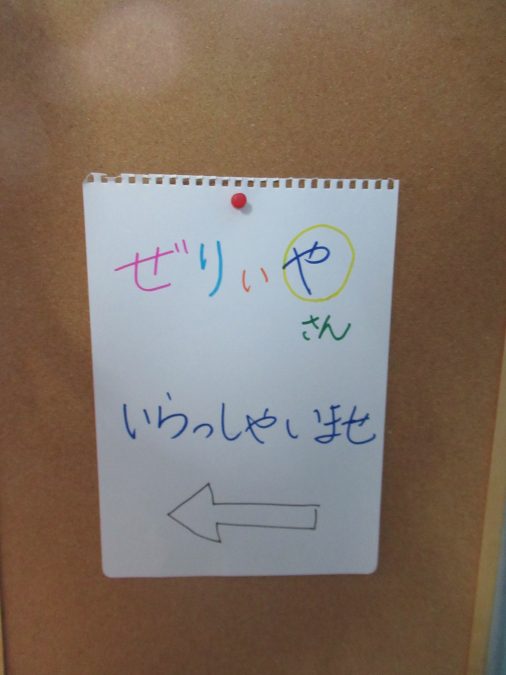 ぜりぃや
さん
いらっしゃいませ